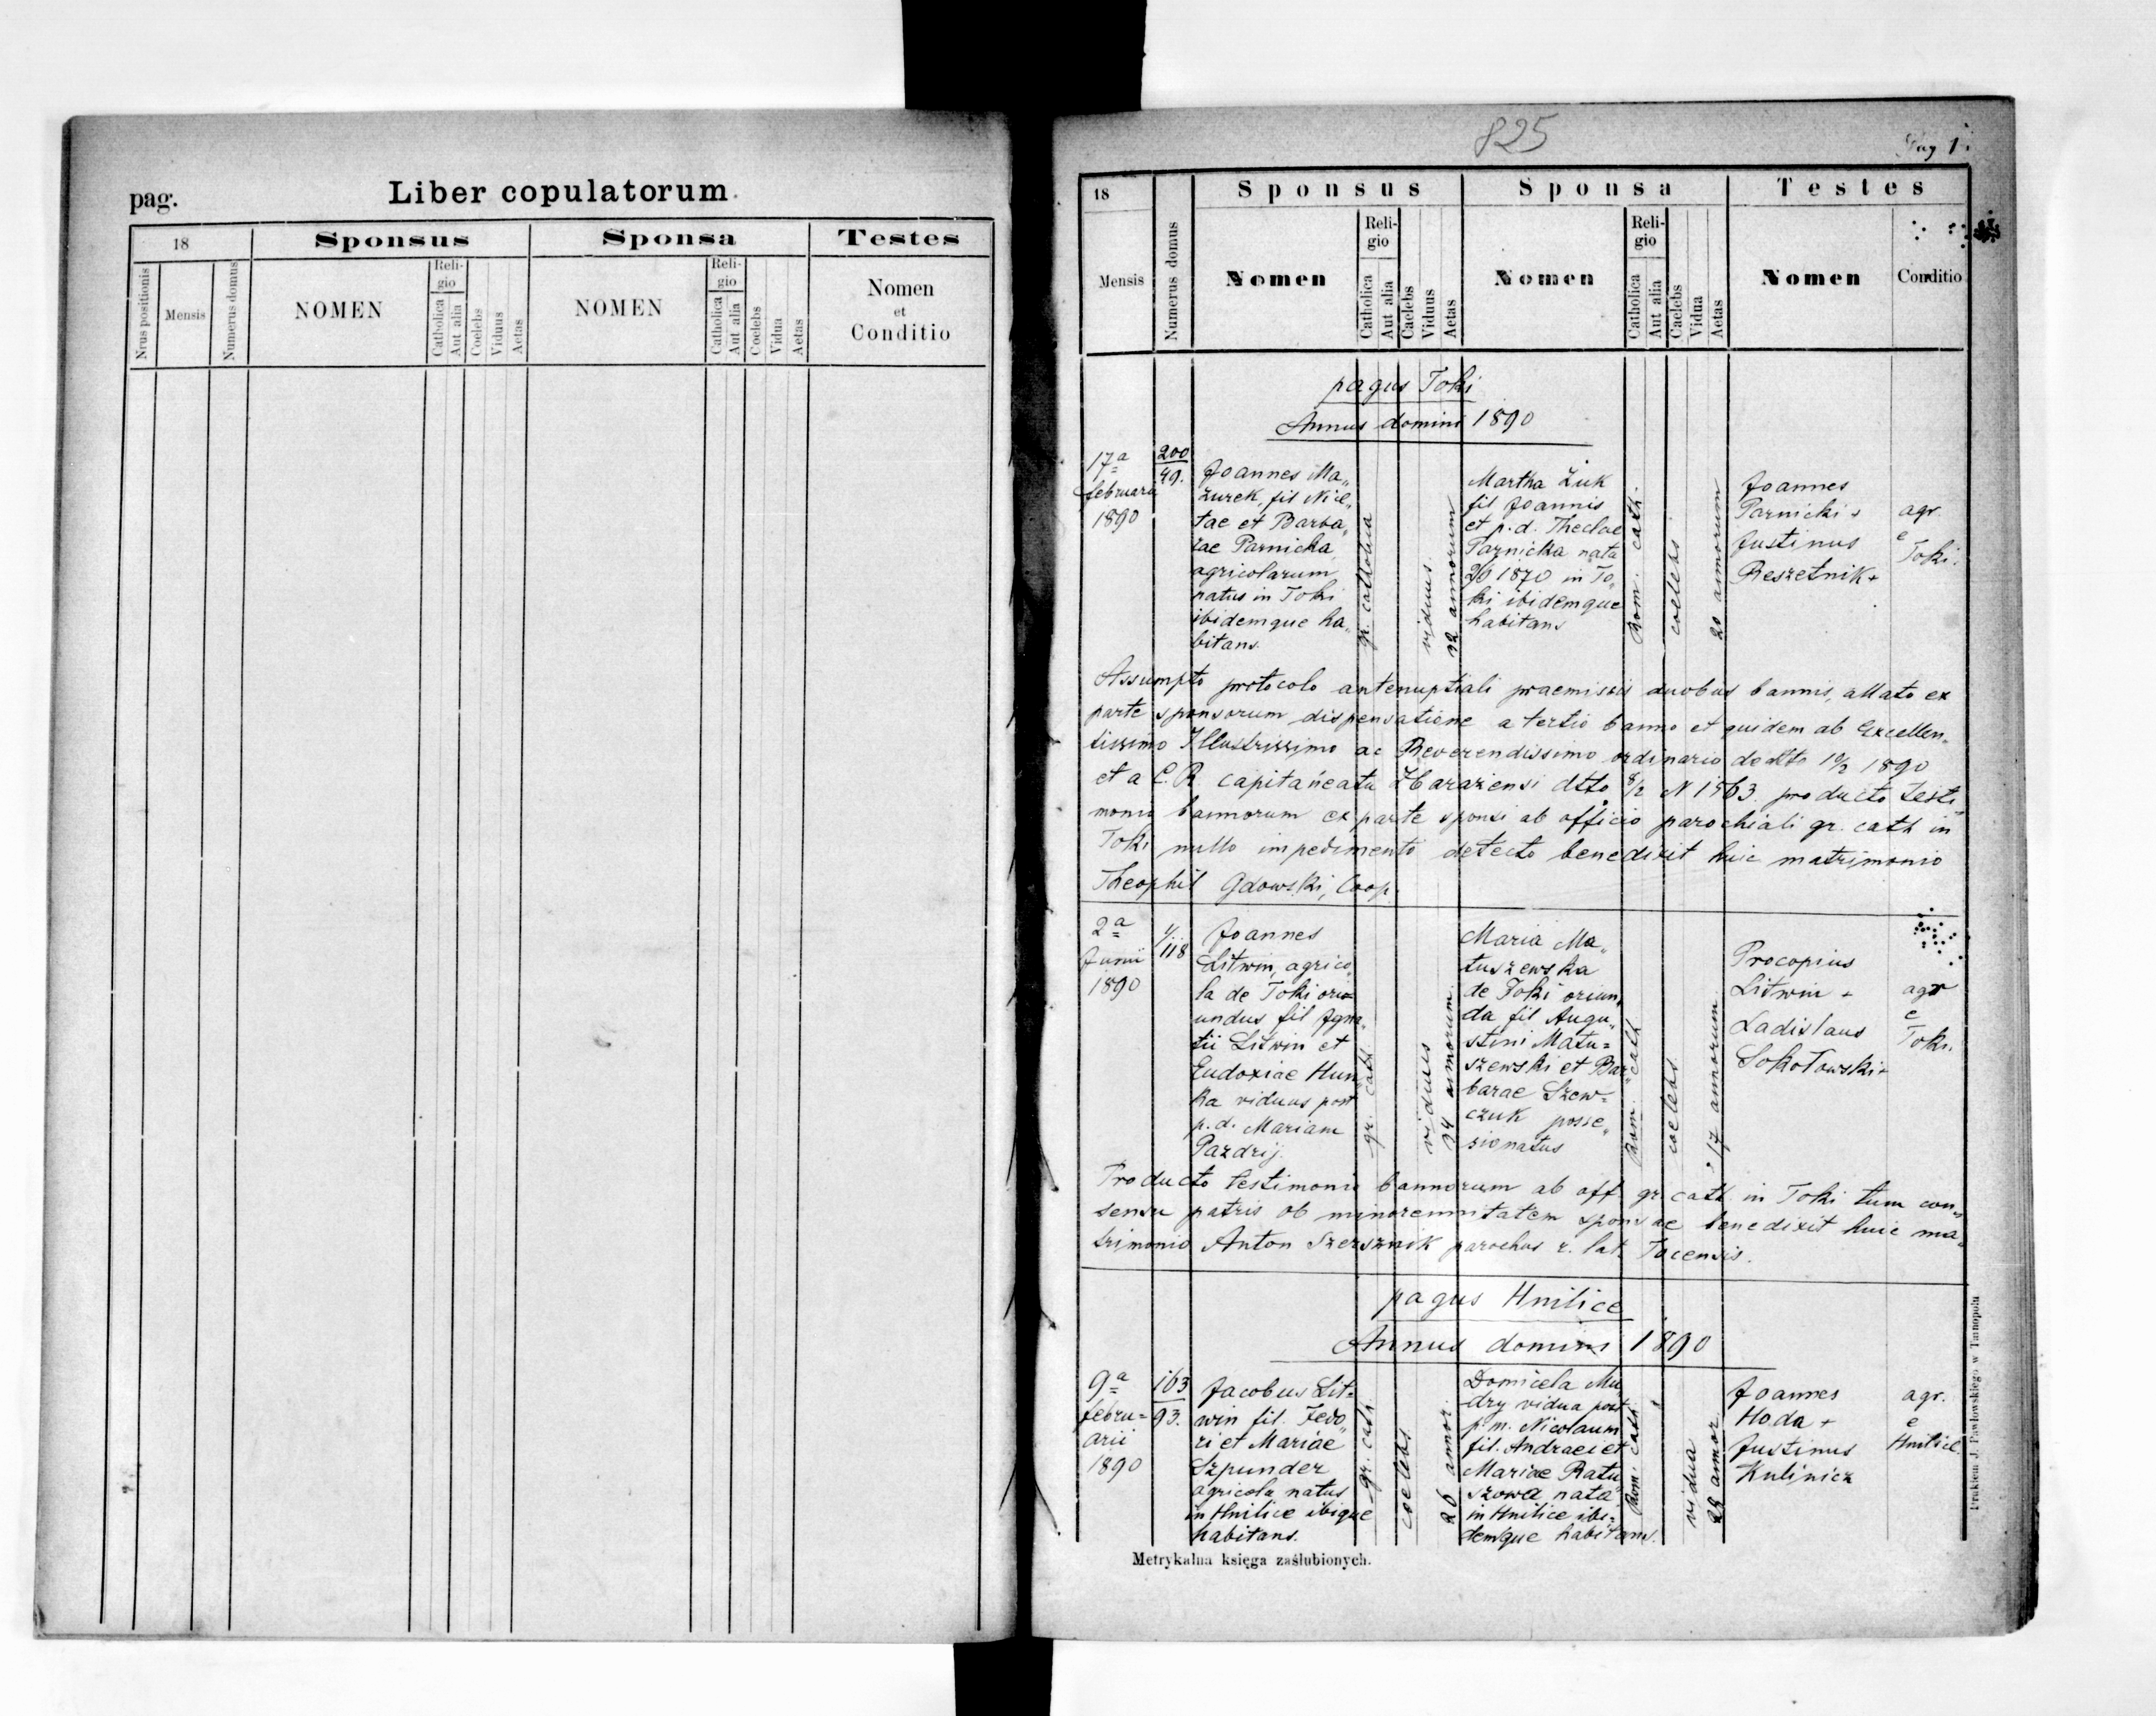 pag.
Liber copulatorum
18
Sponsus
Sponsa
Testes
Nrus positionis
Mensis
Numerus domus
NOMEN
Reli-
gio
Catholica
Aut alia
Coelebs
Viduus
Aetas
NOMEN
Reli-
gio
Catholica
Aut alia
Coelebs
Vidua
Aetas
Nomen
et
Conditio
825
Pag 1.
18
Sponsus
Sponsa
Testes
Mensis
Numerus domus
Nomen
Reli-
gio
Catholica
Aut alia
Caelebs
Viduus
Aetas
Nomen
Reli-
gio
Catholica
Aut alia
Caelebs
Vidua
Aetas
Nomen
Conditio
pagus Toki
Annus domini 1890
17a
februarii
1890
200
49.
Joannes Ma„
zurek, fil Nice„
tae et Barba„
rae Parnicka
agricolarum
natus in Toki
ibidemque ha„
bitans.
gr. catholica
viduus.
32 annorum
Martha Żuk
fil Joannis
et p.d. Theclae
Parnicka nata
2/6 1870 in To„
ki ibidemque
habitans
Rom. cath.
coelebs
20 annorum
Joannes
Parnicki +
Justinus
Reszetnik +
agr.
e
Toki.
Assumpto protocolo antenuptiali praemissis duobus bannis, allato ex
parte sponsorum dispensatione a tertio banno et quidem ab Excellen„
tissimo Illustrissimo ac Reverendissimo ordinario de dto 10/2 1890
et a C. R. capitaneatu Zbaraziensi dtto 8/2 N 1563. producto testi„
monio bannorum ex parte sponsi ab officio parochiali gr. cath in
Toki nullo impedimento detecto benedixit huic matrimonio
Theophil Gdowski, Coop.
2a
Junii
1890
1/118
Joannes
Litwin, agrico„
la de Toki ori„
undus fil Igna„
tii Litwin et
Eudoxiae Hun„
ka viduus post
p.d. Mariam
Pazdrij.
gr. cath.
viduus
34 annorum.
Maria Ma„
tuszewska
de Toki oriun„
da fil Augu„
stini Matu=
szewski et Bar„
barae Szew=
czuk posse„
sionatus
Rom. cath
coelebs
17 annorum
Procopius
Litwin +
Ladislaus
Sokołowski +
agr
e
Toki.
Producto testimonio bannorum ab off. gr. cath. in Toki tum con„
sensu patris ob minorennitatem sponsae benedixit huic ma„
trimonio Anton Szersznik parochus r. lat. Tocensis.
pagus Hnilice
Annus domini 1890
9a
febru=
arii
1890
163
93.
Jacobus Lit=
win fil. Fedo„
ri et Mariae
Szpunder
agricola natus
in Hnilice ibique
habitans.
gr. cath.
coelebs
26 annor.
Domicela Mu„
dry vidua post
p.m. Nicolaum
fil. Andraei et
Mariae Ratu„
szowa nata
in Hnilice ibi=
demque habitans.
Rom. cath.
vidua
28 annor.
Joannes
Hoda +
Justinus
Kulinicz
agr.
e
Hnilice
Metrykalna księga zaślubionych.
Drukiem J. Pawłowskiego w Tarnopolu